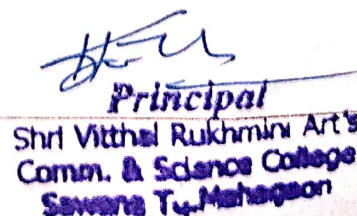 Principal
Shri Vitthal Rukhmini Art's
Comm. & Science College
Sawana Tq. Mahagaon